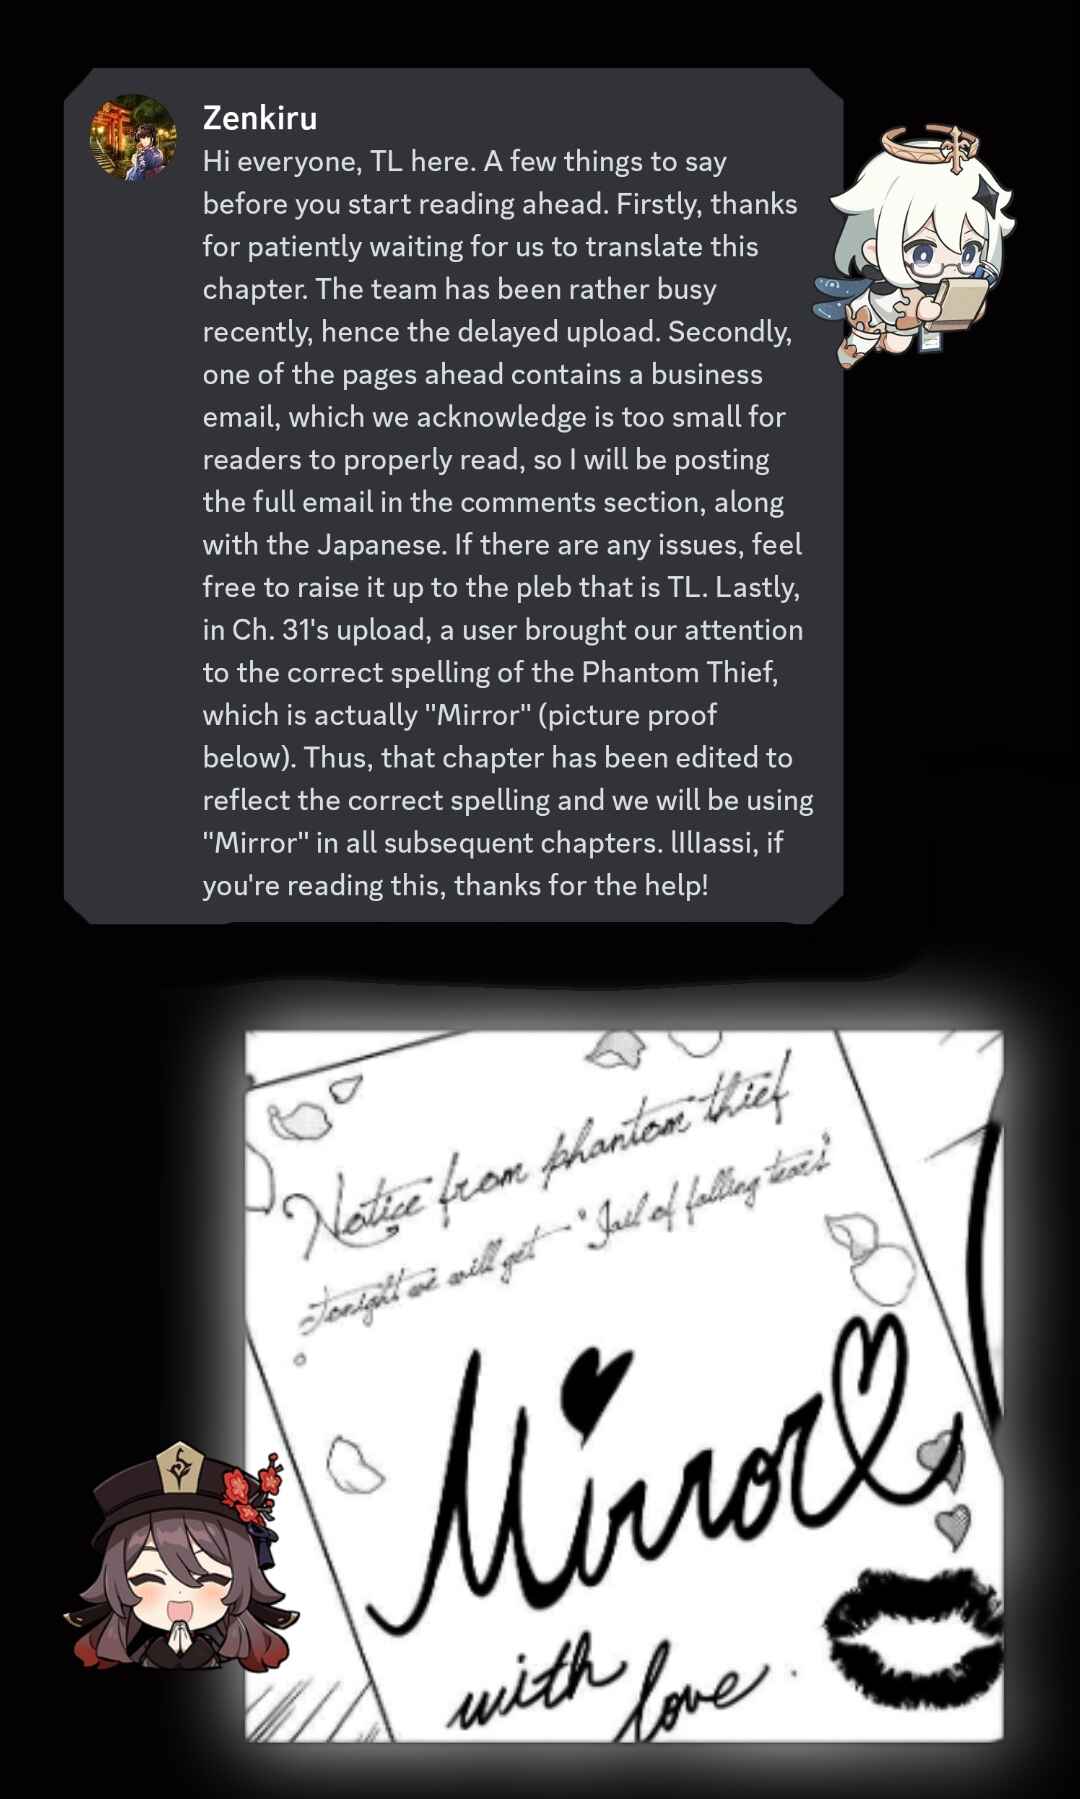 Zenkiru
Hi everyone, TL here. A few things to say
before you start reading ahead. Firstly, thanks
for patiently waiting for us to translate this
chapter. The team has been rather busy
recently, hence the delayed upload. Secondly,
one of the pages ahead contains a business
email, which we acknowledge is too small for
readers to properly read, so I will be posting
the full email in the comments section, along
with the Japanese. If there are any issues, feel
free to raise it up to the pleb that is TL. Lastly,
in Ch. 31's upload, a user brought our attention
to the correct spelling of the Phantom Thief,
which is actually "Mirror" (picture proof
below). Thus, that chapter has been edited to
reflect the correct spelling and we will be using
"Mirror" in all subsequent chapters. lIlIassi, if
you're reading this, thanks for the help!
Notice from phantom thief
tonight we will get "Jail of falling tears"
Mirror
with love.